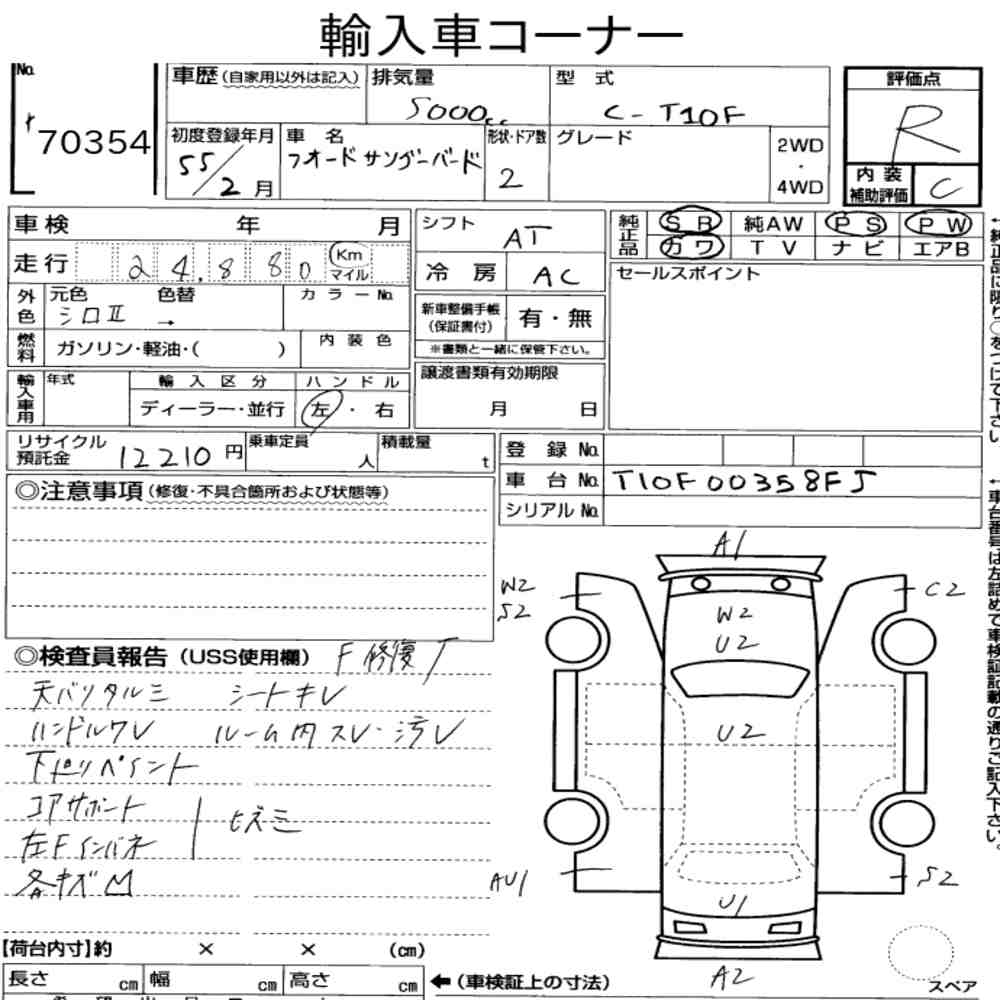 輸入車コーナー
No. 70354
車歴 (自家用以外は記入) 排気量 5000cc 型式 C-T10F
初度登録年月 55/2月 車名 フオード サンダーバード 形状・ドア数 2 グレード 2WD・4WD
評価点 R
内装補助評価 C
車検 年 月
走行 24,880 Km マイル
外色 元色 シロⅡ 色替 → カラーNo.
燃料 ガソリン・軽油・( ) 内装色
輸入車用 年式 輸入区分 ディーラー・並行 ハンドル 左・右
シフト AT
冷房 AC
新車整備手帳 (保証書付) 有・無
※書類と一緒に保管下さい。
譲渡書類有効期限 月 日
純正品 SR 純AW PS PW
カワ TV ナビ エアB
セールスポイント
←純正品に限り○をつけて下さい。
リサイクル預託金 12210円 乗車定員 人 積載量 t
登録No.
車台No. T10F00358FJ
シリアルNo.
←車台番号は左詰めで車検証記載の通りご記入下さい。
◎注意事項 (修復・不具合箇所および状態等)
◎検査員報告 (USS使用欄) F修復
天バリタルミ シートキレ
ハンドルワレ ルーム内スレ・汚レ
下廻りペイント
コアサポート
左Fインパネ ヒズミ
各キズM
A1
W2
S2
C2
W2
U2
U2
AU1
S2
U1
A2
スペア
【荷台内寸】約 × × (cm)
長さ cm 幅 cm 高さ cm ←(車検証上の寸法)